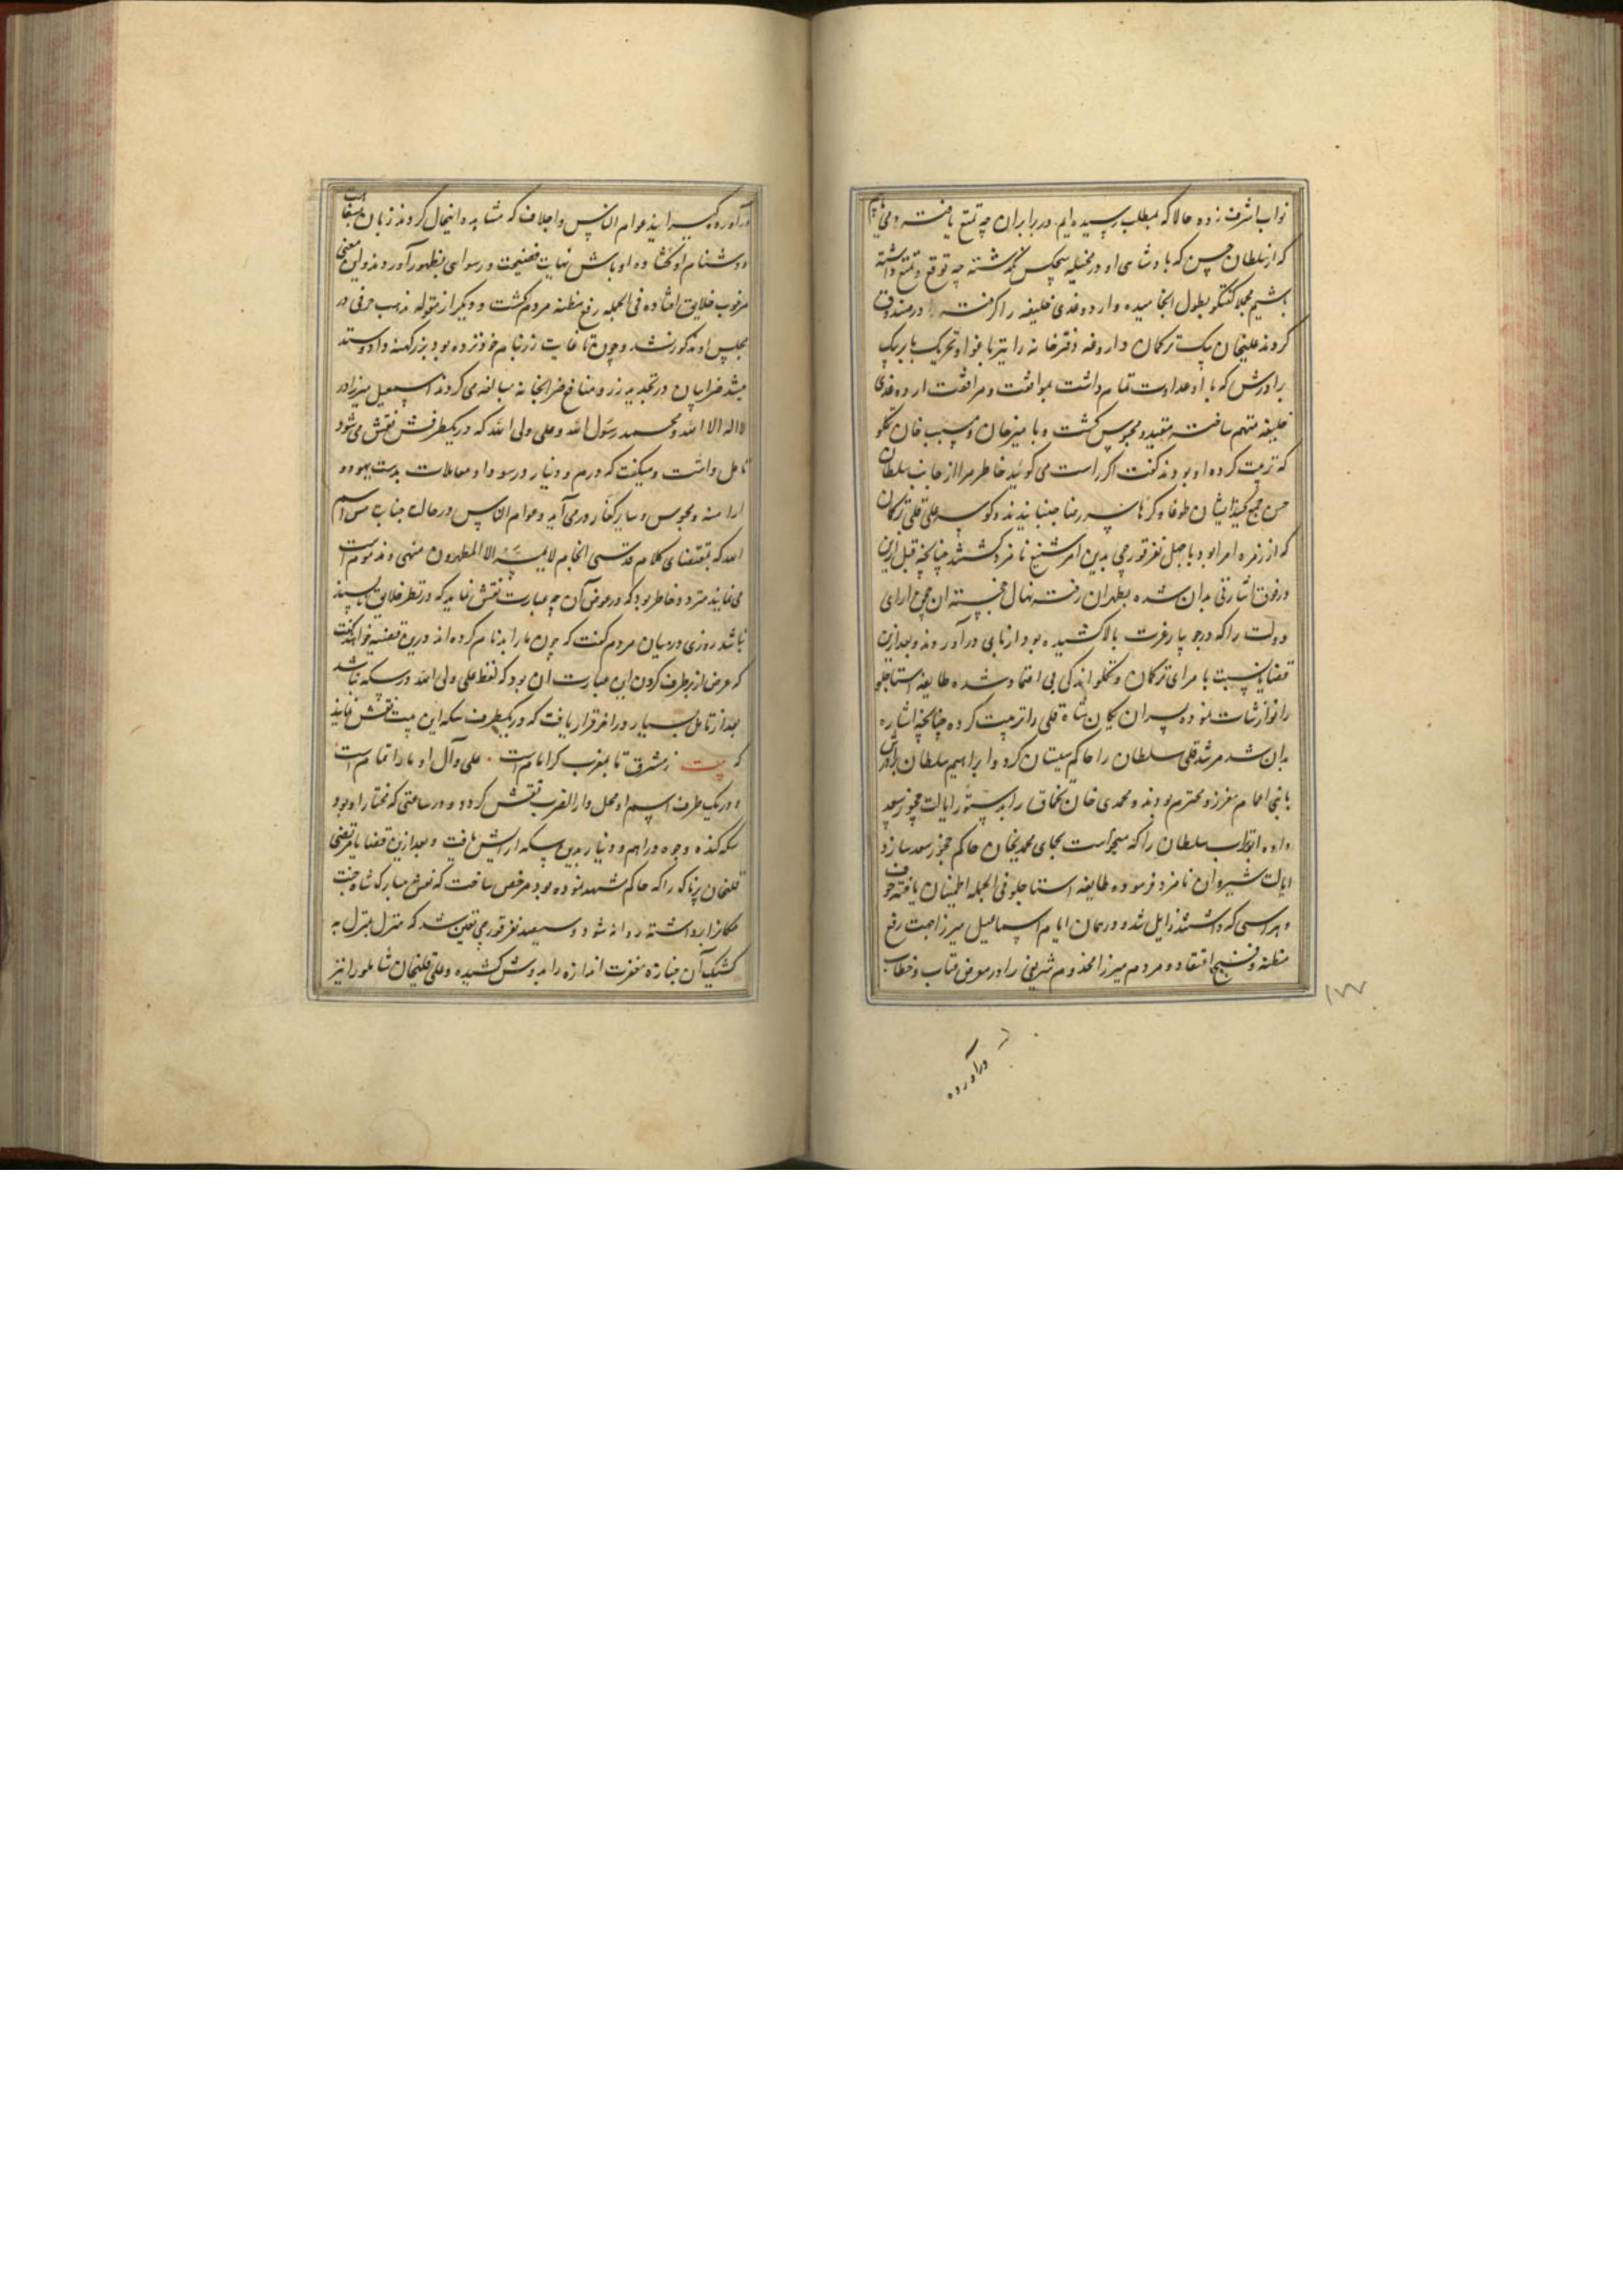 نواب اشرف زده حالا که بمطلب رسیده ایم در برابر آن چه تمتع یافته
که از سلطان حسن که پادشاهی او در مخیله هیچکس نگذشته چه توقع و تمتع داشته
باشیم مجملا گفتگو بطول انجامیده وارد و غدی خلیفه را گرفته در صندوق
کردند علیخان بیک ترکمان داروغه دفترخانه را نیز باغوا و تحریک
برادرش که با او عداوت تمام داشت بموافقت و مرافقت ارده غدی
خلیفه متهم ساخته مقید و محبوس گشت و با میرخان و مسیب خان تکلو
که تربیت کرده او بودند گفت اگر راست می گوئید خاطر مرا از جانب سلطان
حسن جمع کنید ایشان طوعا و کرها سر رضا جنبانیدند و کوسه علی قلی ترکمان
که از زمره امرا بود با چهل نفر قورچی بدین امر شنیع نامزد گشتند چنانچه قبل ازین
در فوق اشارتی بدان شده بطهران رفته نهال خجسته آن چمن آرای
دولت را که در جویبار عزت بالا کشیده بود از پای درآوردند و بعد ازین
قضایا نسبت بامرای ترکمان و تکلو اندکی بی اعتماد شده طایفه استاجلو
را نوازشات نموده پسران شاه قلی را تربیت کرده چنانچه اشاره
بدان شد مرشد قلی سلطان را حاکم سیستان کرد و ابراهیم سلطان برادرش
با بنی اعمام معزز و محترم بودند و محمدی خان تخماق را بدستور ایالت چخور سعد
داده ابوتراب سلطان را که میخواست بجای محمدیخان حاکم چخور سعد سازد
ایالت شیروان نامزد فرموده طایفه استاجلو فی الجمله اطمینان یافته خوف
و هراسی که داشتند زایل شد و در همان ایام اسماعیل میرزا جهت رفع
مظنه و قبح اعتقاد مردم میرزا مخدوم شریفی را در معرض عتاب و خطاب
۱۷۷
درآورده
درآورده عوام الناس و اجلاف که مشاهده اینحال کردند زبان
و دشنام او گشاده اوباش نهایت فضیحت و رسوایی بظهور آوردند و این معنی
مرغوب خلایق افتاده فی الجمله رفع مظنه مردم گشت و دیگر از مقوله مذهب حرفی در
مجلس او مذکور نشد و چون تا غایت زر بنام خود نزده بود و بزر کهنه داد و ستد
میشد ضرابیان در تجدید زر و منافع ضرابخانه مبالغه می کردند اسمعیل میرزا در
لا اله الا الله و محمد رسول الله و علی ولی الله که در یکطرفش نقش می شود
تامل داشت و میگفت که درهم و دینار در سودا و معاملات بدست یهود و
ارامنه و مجوس و سایر کفار در می آید و عوام الناس در حالت جنابت مس اسم
الله که بمقتضای کلام قدسی انجام لا یمسه الا المطهرون منهی و مذموم است
می نمایند متردد خاطر بود که در عوض آن چه عبارت نقش نماید که در نظر خلایق ناپسند
نباشد روزی در میان مردم گفت که چون ما را بدنام کرده اند درین قضیه خواهند گفت
که غرض از برطرف کردن این عبارت آن بود که لفظ علی ولی الله در سکه نباشد
بعد از تامل بسیار در آخر قرار یافت که در یکطرف سکه این بیت نقش نمایند
که بیت ز مشرق تا بمغرب گر امام است علی و آل او ما را تمام است
و در یک طرف اسم او و محل دار الضرب نقش کردند و در ساعتی که مختار او بود
سکه کنده وجوه دراهم و دنانیر بدین سکه آرایش یافت و بعد ازین قضایا مرتضی
قلیخان پرناک را که حاکم مشهد نموده بود مرخص ساخت که نعش مبارک شاه جنت
مکانرا برداشته روانه شود و سیصد نفر قورچی تعیین شد که منزل بمنزل به
کشیک آن جنازه مغفرت اندازه را بدوش کشیده و علی قلیخان شاملو را نیز